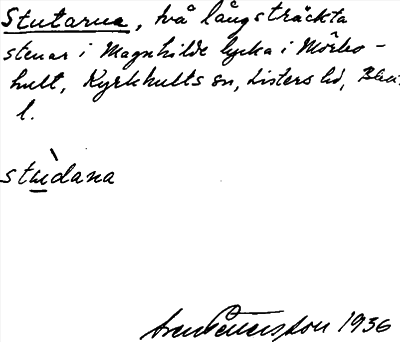 Stutarna, två långsträckta
stenar i Magnhilds lycka i Mörbo-
hult, Kyrkhults sn, Listers hd, Blek.
l.
stùdana
Sven Petersson 1936